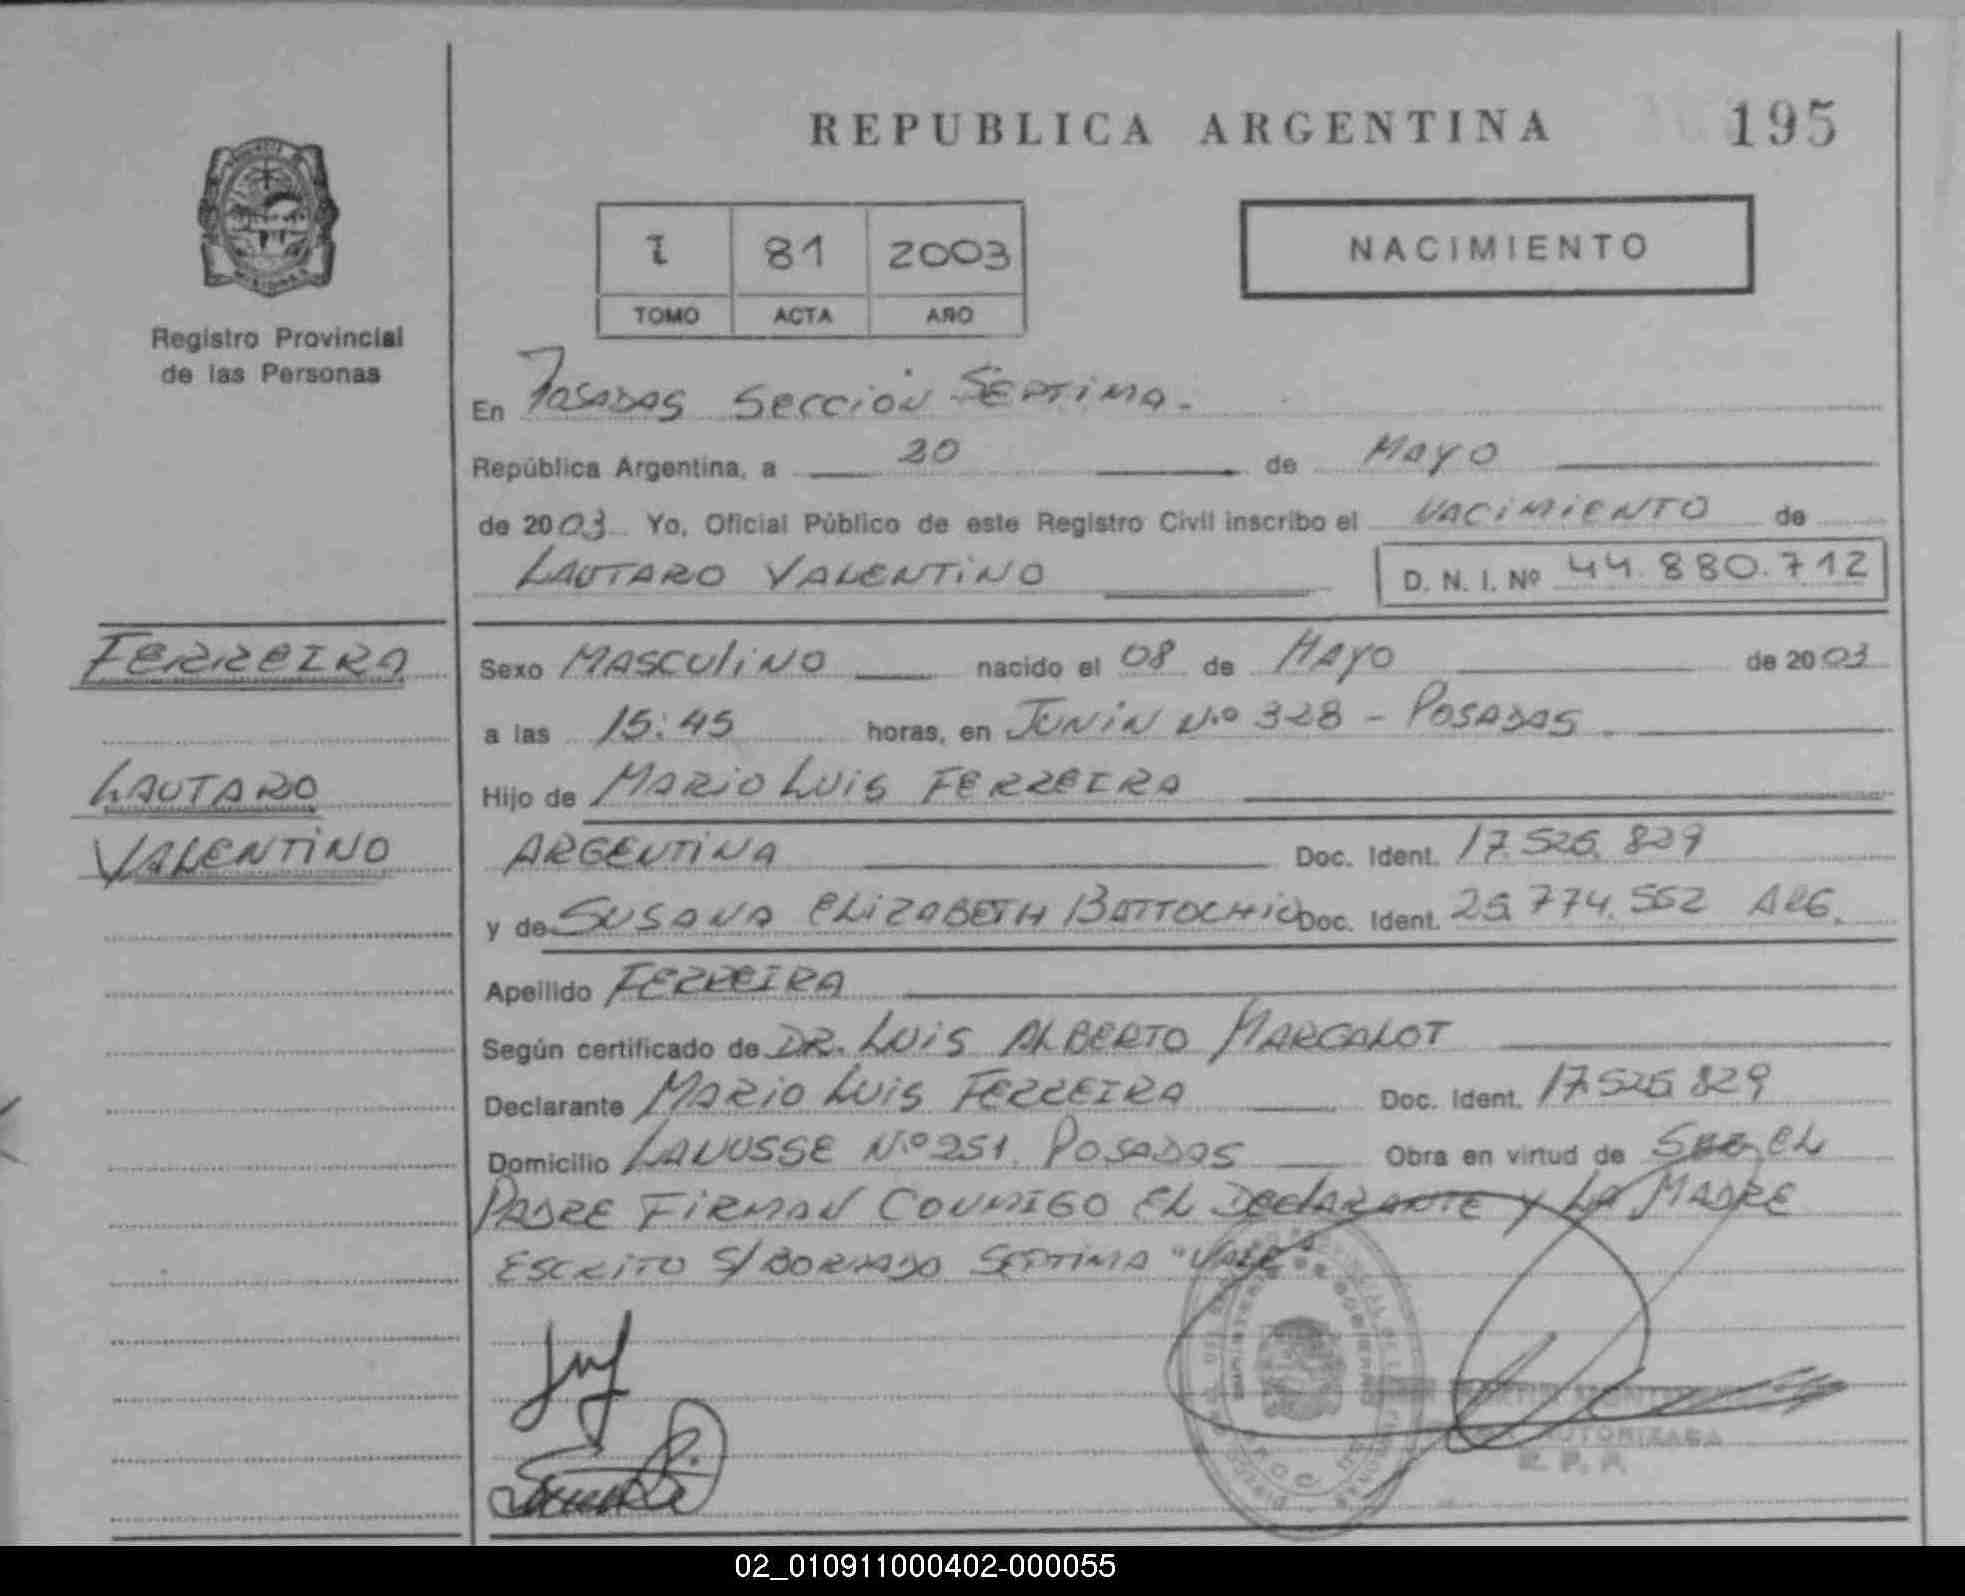 REPUBLICA ARGENTINA 195
81 2003
TOMO ACTA AÑO
NACIMIENTO
Registro Provincial
de las Personas
En Posadas Sección Septima.
República Argentina, a 20 de Mayo
de 2003 Yo, Oficial Público de este Registro Civil inscribo el Nacimiento de
LAUTARO VALENTINO D. N. I. Nº 44.880.712
FERREIRA
Sexo MASCULINO nacido el 08 de MAYO de 2003
a las 15:45 horas, en JUNIN N.º 328 - POSADAS.
LAUTARO
Hijo de MARIO LUIS FERREIRA
VALENTINO
ARGENTINA Doc. Ident. 17.526.829
y de SUSANA ELIZABETH Doc. Ident. 25.774.552 ARG.
Apellido FERREIRA
Según certificado de DR. LUIS ALBERTO MARGALOT
Declarante MARIO LUIS FERREIRA Doc. Ident. 17.526.829
Domicilio LANUSSE N.º 251. POSADAS Obra en virtud de SER EL
PADRE FIRMAN CONMIGO EL DECLARANTE Y LA MADRE
ESCRITO S/BORRADO SEPTIMA "VALE"
AUTORIZADA
R. P. P.
02_010911000402-000055